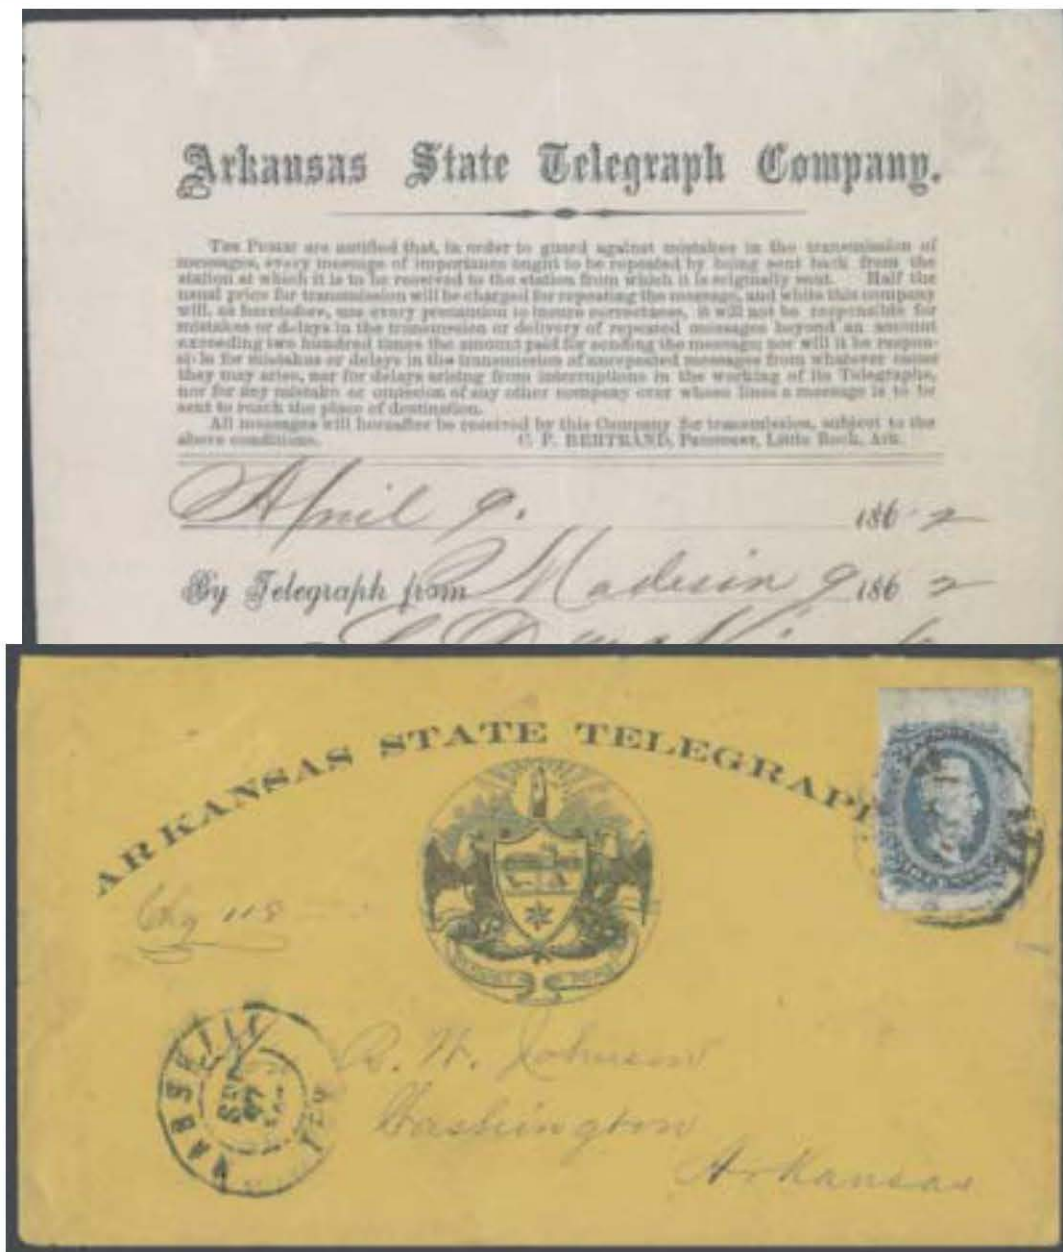 Arkansas State Telegraph Company.
THE PUBLIC are notified that, in order to guard against mistakes in the transmission of
messages, every message of importance ought to be repeated by being sent back from the
station at which it is to be received to the station from which it is originally sent. Half the
usual price for transmission will be charged for repeating the message, and while this company
will, as heretofore, use every precaution to insure correctness, it will not be responsible for
mistakes or delays in the transmission or delivery of repeated messages beyond an amount
exceeding two hundred times the amount paid for sending the message; nor will it be respon-
sible for mistakes or delays in the transmission of unrepeated messages from whatever cause
they may arise, nor for delays arising from interruptions in the working of its Telegraphs,
nor for any mistake or omission of any other company over whose lines a message is to be
sent to reach the place of destination.
All messages will hereafter be received by this Company for transmission, subject to the
above conditions. C. P. BERTRAND, President, Little Rock, Ark.
April 9. 1862
By Telegraph from Madison 9 1862
ARKANSAS STATE TELEGRAPH
Chg 118
NASHVILLE
TEN
Johnson
Washington
Arkansas